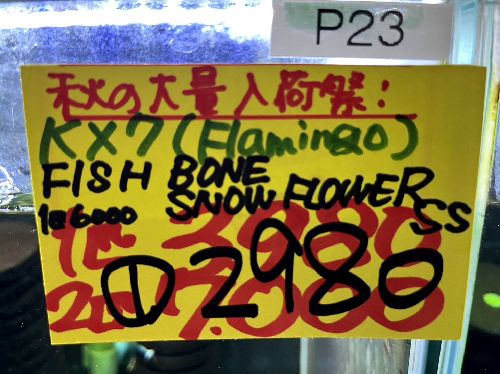 P23
秋の大量入荷祭!
KX7(Flamingo)
FISH BONE
SNOW FLOWER SS
1匹6000
1匹 3980
①2980
2匹 7.000